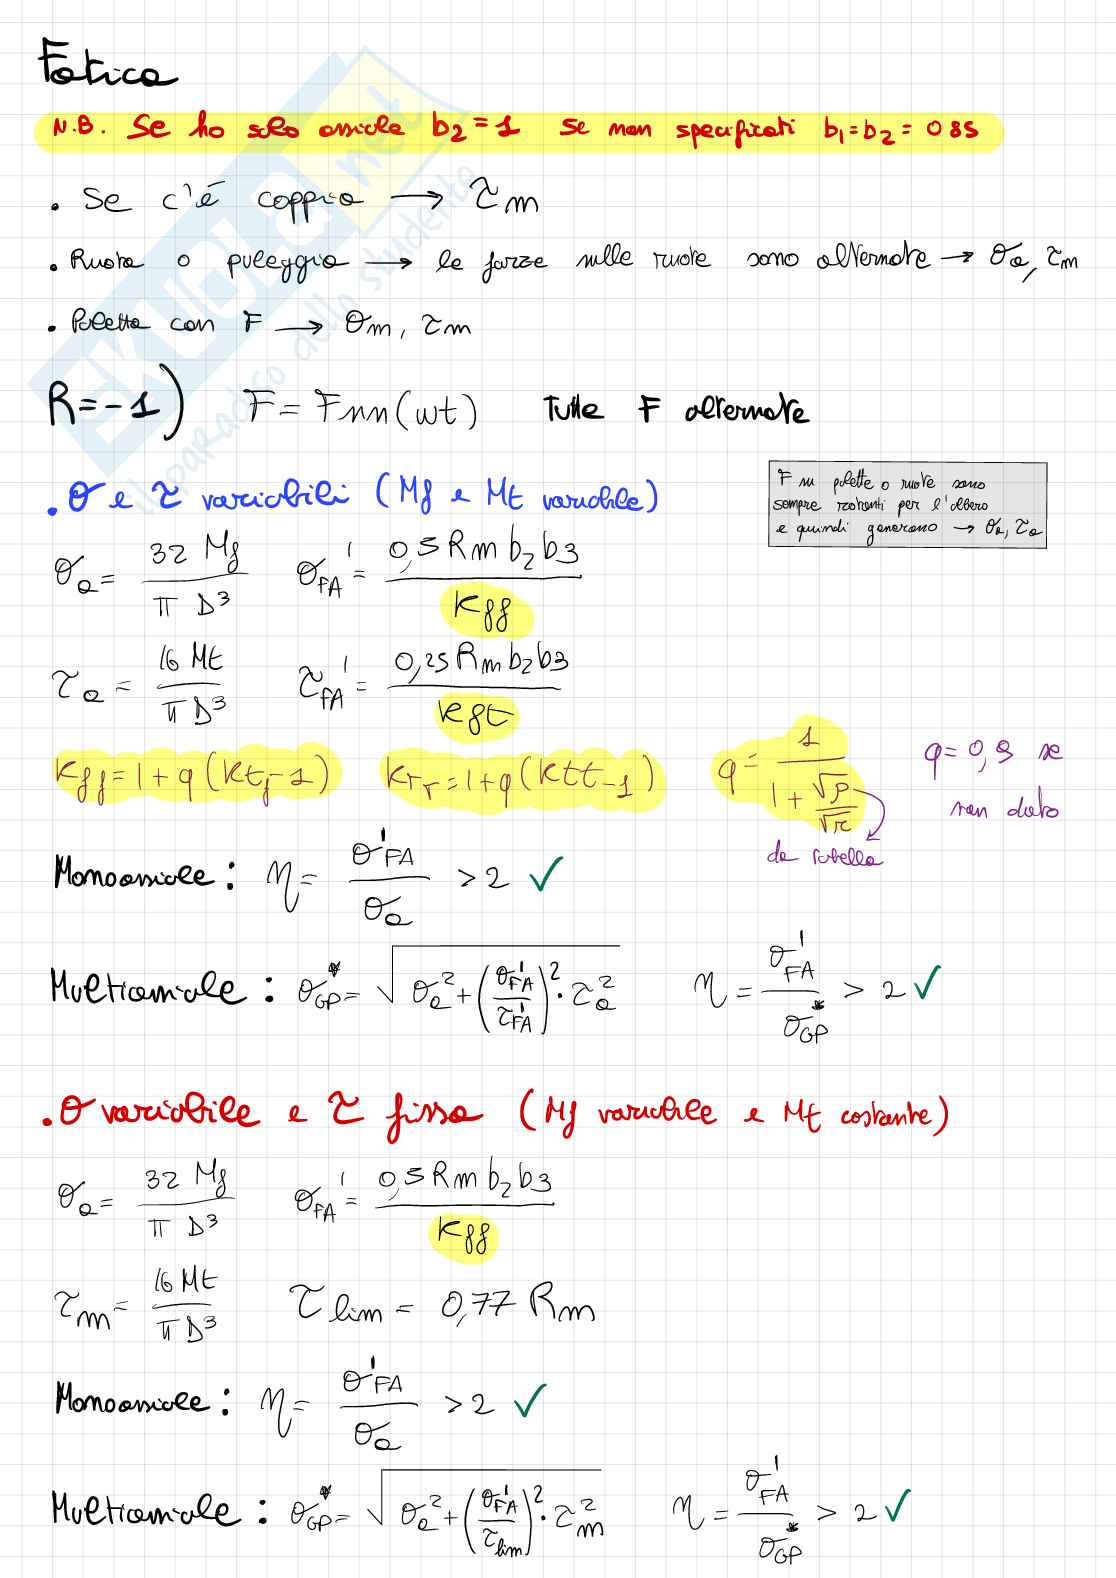 Fatica
N.B. Se ho solo assiale b2 = 1 se non specificati b1 = b2 = 0 85
. Se c'è coppia → τm
. Ruota o puleggia → le forze sulle ruote sono alternate → σa, τm
. Paletta con F → σm, τm
R = -1) F = F sin(wt) Tutte F alternate
. σ e τ variabili (Mf e Mt variabile)
F su palette o ruote sono
sempre rotanti per l'albero
e quindi generano → σa, τa
σa = 32 Mf / π D³ σ'FA = 0,5 Rm b2 b3 / Kff
τa = 16 Mt / π D³ τ'FA = 0,25 Rm b2 b3 / Kft
Kff = 1 + q (Ktf - 1) Kfτ = 1 + q (Ktt - 1) q = 1 / (1 + √ρ / √r) q = 0,9 se
non dato
da tabella
Monoassiale : η = σ'FA / σa > 2 ✓
Multiassiale : σ*GP = √(σa² + (σ'FA / τ'FA)² · τa²) η = σ'FA / σ*GP > 2 ✓
. σ variabile e τ fissa (Mf variabile e Mt costante)
σa = 32 Mf / π D³ σ'FA = 0,5 Rm b2 b3 / Kff
τm = 16 Mt / π D³ τlim = 0,77 Rm
Monoassiale : η = σ'FA / σa > 2 ✓
Multiassiale : σ*GP = √(σa² + (σ'FA / τlim)² · τm²) η = σ'FA / σ*GP > 2 ✓
SKUOLA.net
il paradiso dello studente